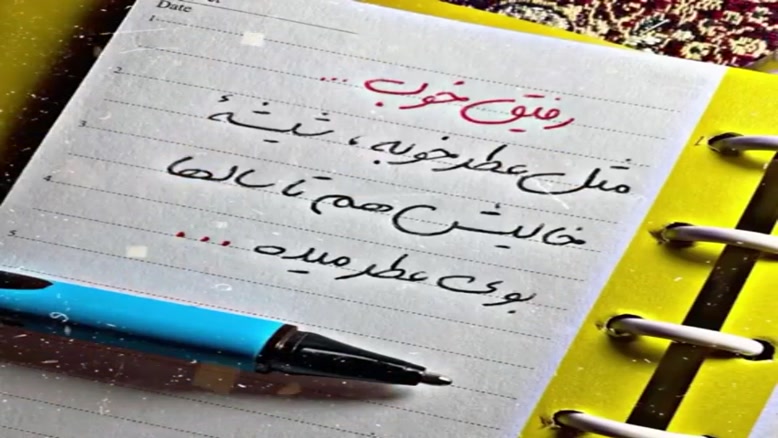 Date
1
رفیق خوب ...
2
مثل عطر خوبه، شیشهٔ
3
خالیش هم تا سالها
4
بوی عطر میده ...
5